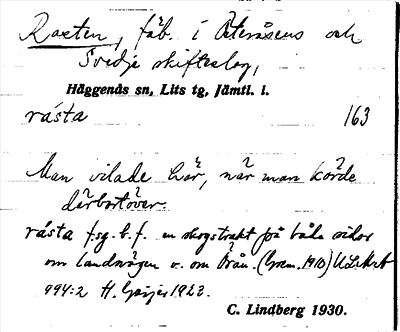 Rasten, fäb. i Österåsens och
Svedje skifteslag,
Häggenås sn, Lits tg, Jämtl. l.
rásta 163
Man vilade här, när man körde
därbortöver.
rásta f.sg.b.f. en skogstrakt på båda sidor
om landsvägen v. om Örån. (Gram. 1910) ULMA
994:2 H. Geijer 1922.
C. Lindberg 1930.